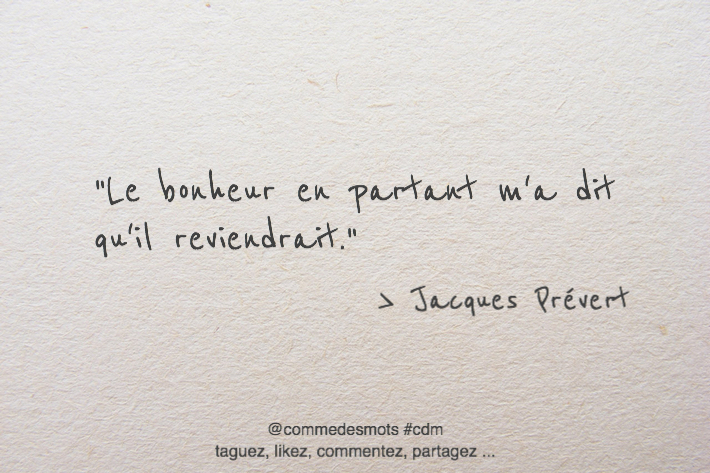 "Le bonheur en partant m'a dit
qu'il reviendrait."
> Jacques Prévert
@commedesmots #cdm
taguez, likez, commentez, partagez ...